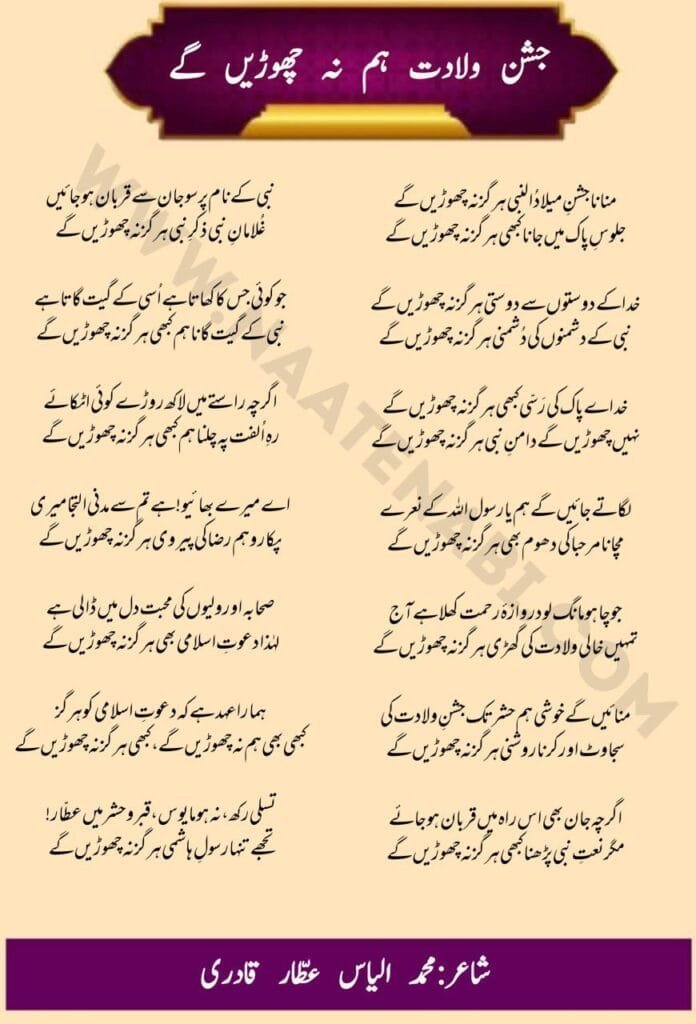 جشن ولادت ہم نہ چھوڑیں گے
منانا جشنِ میلادُ النبی ہرگز نہ چھوڑیں گے
جلوسِ پاک میں جانا کبھی ہرگز نہ چھوڑیں گے
خدا کے دوستوں سے دوستی ہرگز نہ چھوڑیں گے
نبی کے دشمنوں کی دُشمنی ہرگز نہ چھوڑیں گے
خداے پاک کی رَسّی کبھی ہرگز نہ چھوڑیں گے
نہیں چھوڑیں گے دامنِ نبی ہرگز نہ چھوڑیں گے
لگاتے جائیں گے ہم یارسول اللہ کے نعرے
مچانا مرحبا کی دھوم بھی ہرگز نہ چھوڑیں گے
جو چاہو مانگ لو دروازۂ رحمت کھلا ہے آج
تمہیں خالی ولادت کی گھڑی ہرگز نہ چھوڑیں گے
منائیں گے خوشی ہم حشر تک جشنِ ولادت کی
سجاوٹ اور کرنا روشنی ہرگز نہ چھوڑیں گے
اگرچہ جان بھی اس راہ میں قربان ہو جائے
مگر نعتِ نبی پڑھنا کبھی ہرگز نہ چھوڑیں گے
نبی کے نام پر سو جان سے قربان ہو جائیں
غُلامانِ نبی ذکرِ نبی ہرگز نہ چھوڑیں گے
جو کوئی جس کا کھاتا ہے اُسی کے گیت گاتا ہے
نبی کے گیت گانا ہم کبھی ہرگز نہ چھوڑیں گے
اگرچہ راستے میں لاکھ روڑے کوئی اٹکائے
رہِ اُلفت پہ چلنا ہم کبھی ہرگز نہ چھوڑیں گے
اے میرے بھائیو! ہے تم سے مدنی التجا میری
پکارو ہم رضا کی پیروی ہرگز نہ چھوڑیں گے
صحابہ اور ولیوں کی محبت دل میں ڈالی ہے
لہٰذا دعوتِ اسلامی بھی ہرگز نہ چھوڑیں گے
ہمارا عہد ہے کہ دعوتِ اسلامی کو ہرگز
کبھی بھی ہم نہ چھوڑیں گے، کبھی ہرگز نہ چھوڑیں گے
تسلی رکھ، نہ ہو مایوس، قبر و حشر میں عطّار!
تجھے تنہا رسولِ ہاشمی ہرگز نہ چھوڑیں گے
شاعر: محمد الیاس عطّار قادری
WWW.NAATENABI.COM